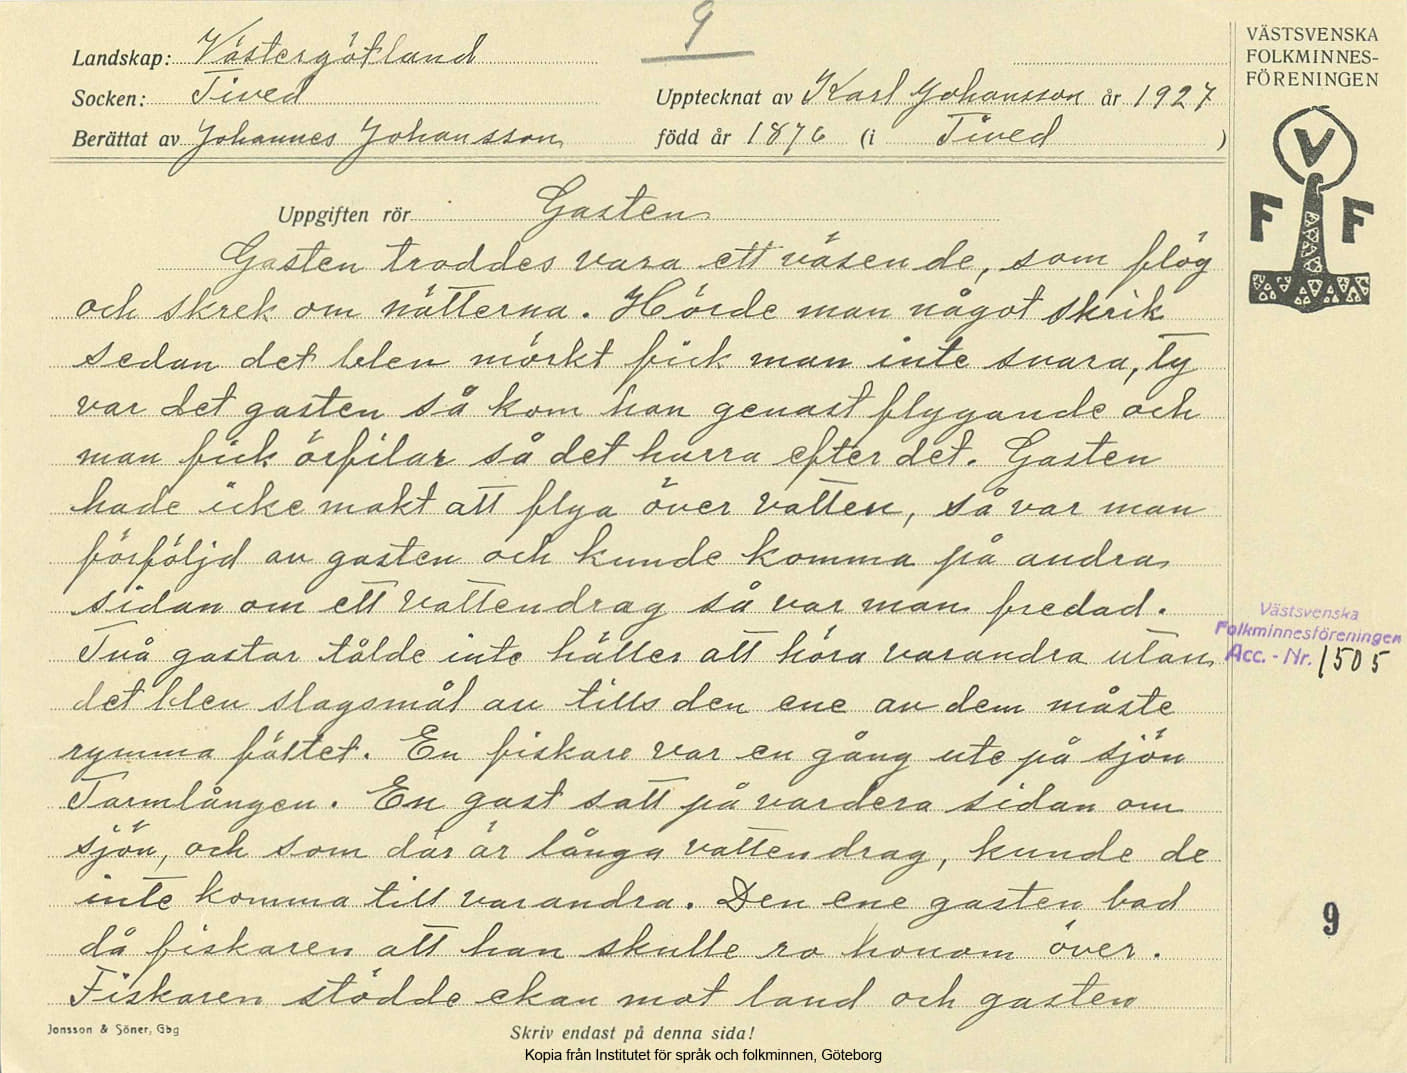 9
Landskap: Västergötland
Socken: Tived
Berättat av Johannes Johansson
Upptecknat av Karl Johansson år 1927
född år 1876 (i Tived )
VÄSTSVENSKA
FOLKMINNES-
FÖRENINGEN
V
F F
Uppgiften rör Gasten
Gasten troddes vara ett väsende, som flög
och skrek om nätterna. Hörde man något skrik
sedan det blev mörkt fick man inte svara, ty
var det gasten så kom han genast flygande och
man fick örfilar så det hurra efter det. Gasten
hade icke makt att flya över vatten, så var man
förföljd av gasten och kunde komma på andra
sidan om ett vattendrag så var man fredad.
Två gastar tålde inte häller att höra varandra utan
det blev slagsmål av tills den ene av dem måste
rymma fältet. En fiskare var en gång ute på sjön
Tarmlången. En gast satt på vardera sidan om
sjön, och som där är långa vattendrag, kunde de
inte komma till varandra. Den ene gasten bad
då fiskaren att han skulle ro honom över.
Fiskaren stödde ekan mot land och gasten
Västsvenska
Folkminnesföreningen
Acc. - Nr. 1505
9
Jonsson & Söner, Gbg
Skriv endast på denna sida!
Kopia från Institutet för språk och folkminnen, Göteborg